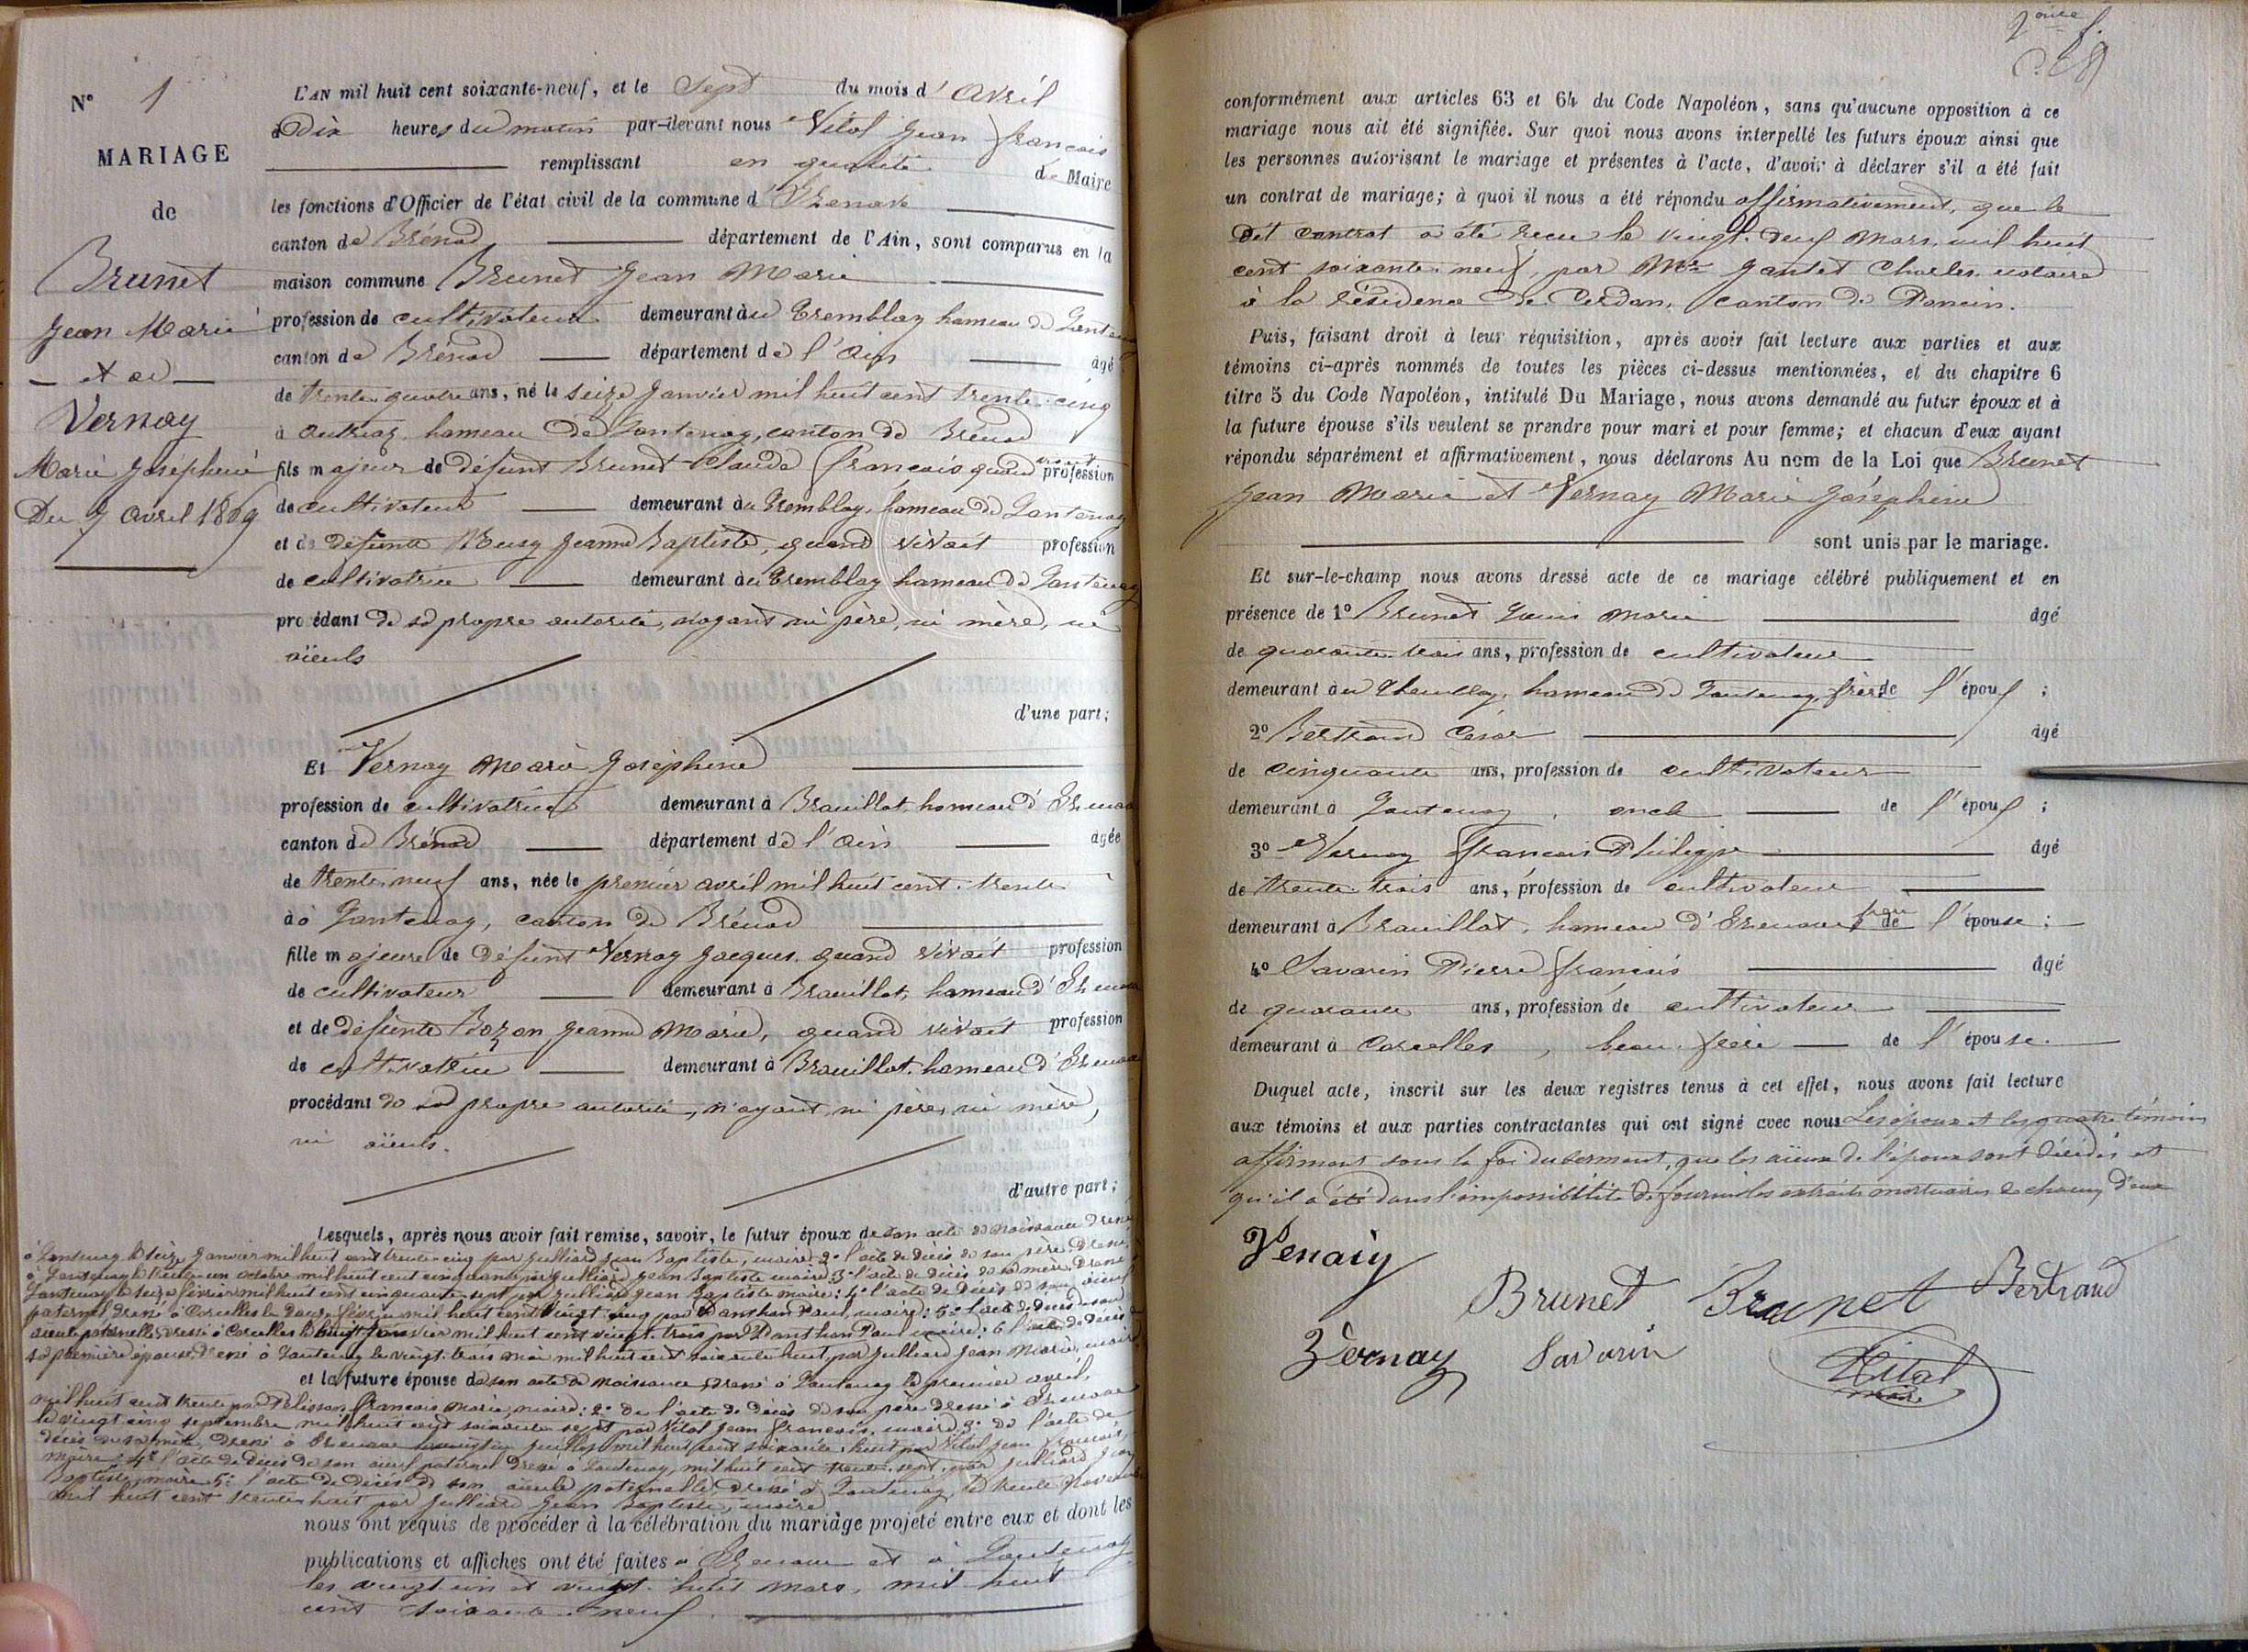 N° 1
MARIAGE
de
Brunet
Jean Marie
et de
Vernay
Marie Joséphine
Du 7 avril 1869
L'AN mil huit cent soixante-neuf, et le Sept du mois d'avril
à Dix heures du matin par-devant nous Vital Jean François
remplissant en qualité de Maire
les fonctions d'Officier de l'état civil de la commune d'
canton de Brénod département de l'Ain, sont comparus en la
maison commune Brunet Jean Marie
profession de cultivateur demeurant au Tremblay hameau de Lantenay
canton de Brénod département de l'Ain âgé
de trente quatre ans, né le seize Janvier mil huit cent trente-cinq
à outriaz hameau de Lantenay, canton de Brénod
fils majeur de défunt Brunet Claude François quand vivait profession
de cultivateur demeurant au Tremblay, hameau de Lantenay
et de défunte Jeanne Baptiste, quand vivait profession
de cultivatrice demeurant au Tremblay hameau de Lantenay
procédant de sa propre autorité, n'ayant ni père, ni mère, ni
aïeuls
d'une part;
Et Vernay Marie Joséphine
profession de cultivatrice demeurant à Brouillat, hameau d'
canton de Brénod département de l'Ain âgée
de trente-neuf ans, née le premier avril mil huit cent trente
à à Lantenay, canton de Brénod
fille majeure de défunt Vernay Jacques, quand vivait profession
de cultivateur demeurant à Brouillat, hameau d'
et de défunte Bozon Jeanne Marie, quand vivait profession
de cultivatrice demeurant à Brouillat, hameau d'
procédant de sa propre autorité, n'ayant, ni père, ni mère,
ni aïeuls.
d'autre part;
Lesquels, après nous avoir fait remise, savoir, le futur époux de son acte de naissance dressé
à Lantenay le seize Janvier mil huit cent trente-cinq par Julliard Jean Baptiste, maire; 2° l'acte de décès de son père, dressé
à Lantenay le trente un octobre mil huit cent cinquante par Julliard Jean Baptiste maire; 3° l'acte de décès de sa mère, dressé
Lantenay le seize février mil huit cent cinquante sept par Julliard Jean Baptiste maire; 4° l'acte de décès de son aïeul
paternel dressé à Corcelles le Douze février mil huit cent vingt cinq par Paul, maire; 5° l'acte de décès de son
aïeule paternelle dressé à Corcelles le huit Janvier mil huit cent vingt-trois par Paul maire; 6° l'acte de décès de
sa première épouse, dressé à Lantenay le vingt-trois mai mil huit cent soixante huit par Julliard Jean Marie, maire
et la future épouse de son acte de naissance, dressé à Lantenay le premier avril,
mil huit cent trente par Pelisson François Marie, maire; 2° de l'acte de décès de son père dressé à
le vingt cinq septembre mil huit cent soixante sept par Vital Jean François, maire; 3° de l'acte de
décès de sa mère, dressé à juillet mil huit cent soixante huit par Vital Jean François,
maire; 4° l'acte de décès de son aïeul paternel dressé à Lantenay, mil huit cent trente-sept, par Julliard Jean
Baptiste, maire 5° l'acte de décès de son aïeule paternelle, dressé à Lantenay, le trente novembre
mil huit cent trente huit par Julliard Jean Baptiste, maire
nous ont requis de procéder à la célébration du mariage projeté entre eux et dont les
publications et affiches ont été faites à et à Lantenay
les vingt un et vingt-huit mars, mil huit
cent soixante-neuf
conformément aux articles 63 et 64 du Code Napoléon, sans qu'aucune opposition à ce
mariage nous ait été signifiée. Sur quoi nous avons interpellé les futurs époux ainsi que
les personnes autorisant le mariage et présentes à l'acte, d'avoir à déclarer s'il a été fait
un contrat de mariage; à quoi il nous a été répondu affirmativement, que le
dit contrat a été recu le vingt-neuf mars, mil huit
cent soixante-neuf, par Me Gautet Charles, notaire
à la résidence de Cerdon, canton de Poncin.
Puis, faisant droit à leur réquisition, après avoir fait lecture aux parties et aux
témoins ci-après nommés de toutes les pièces ci-dessus mentionnées, et du chapitre 6
titre 5 du Code Napoléon, intitulé Du Mariage, nous avons demandé au futur époux et à
la future épouse s'ils veulent se prendre pour mari et pour femme; et chacun d'eux ayant
répondu séparément et affirmativement, nous déclarons Au nom de la Loi que Brunet
Jean Marie et Vernay Marie Joséphine
sont unis par le mariage.
Et sur-le-champ nous avons dressé acte de ce mariage célébré publiquement et en
présence de 1° Brunet Louis Marie âgé
de quarante-trois ans, profession de cultivateur
demeurant au Tremblay, hameau de Lantenay, frère de l'époux;
2° Bertrand César âgé
de cinquante ans, profession de cultivateur
demeurant à Lantenay, oncle de l'époux;
3° Vernay François Philippe âgé
de trente-trois ans, profession de cultivateur
demeurant à Brouillat, hameau d' frère de l'épouse;
4° Savarin Pierre François âgé
de quarante ans, profession de cultivateur
demeurant à Corcelles, beau-frère de l'épouse.
Duquel acte, inscrit sur les deux registres tenus à cet effet, nous avons fait lecture
aux témoins et aux parties contractantes qui ont signé avec nous Les époux et les quatre témoins
affirmant sous la foi du serment, que les aïeux de l'époux sont décédés et
qu'il a été dans l'impossibilité de fournir les extraits mortuaires de chacun d'eux
Venaiy
Brunet Brunet Bertrand
Vernay Savarin Vital
maire